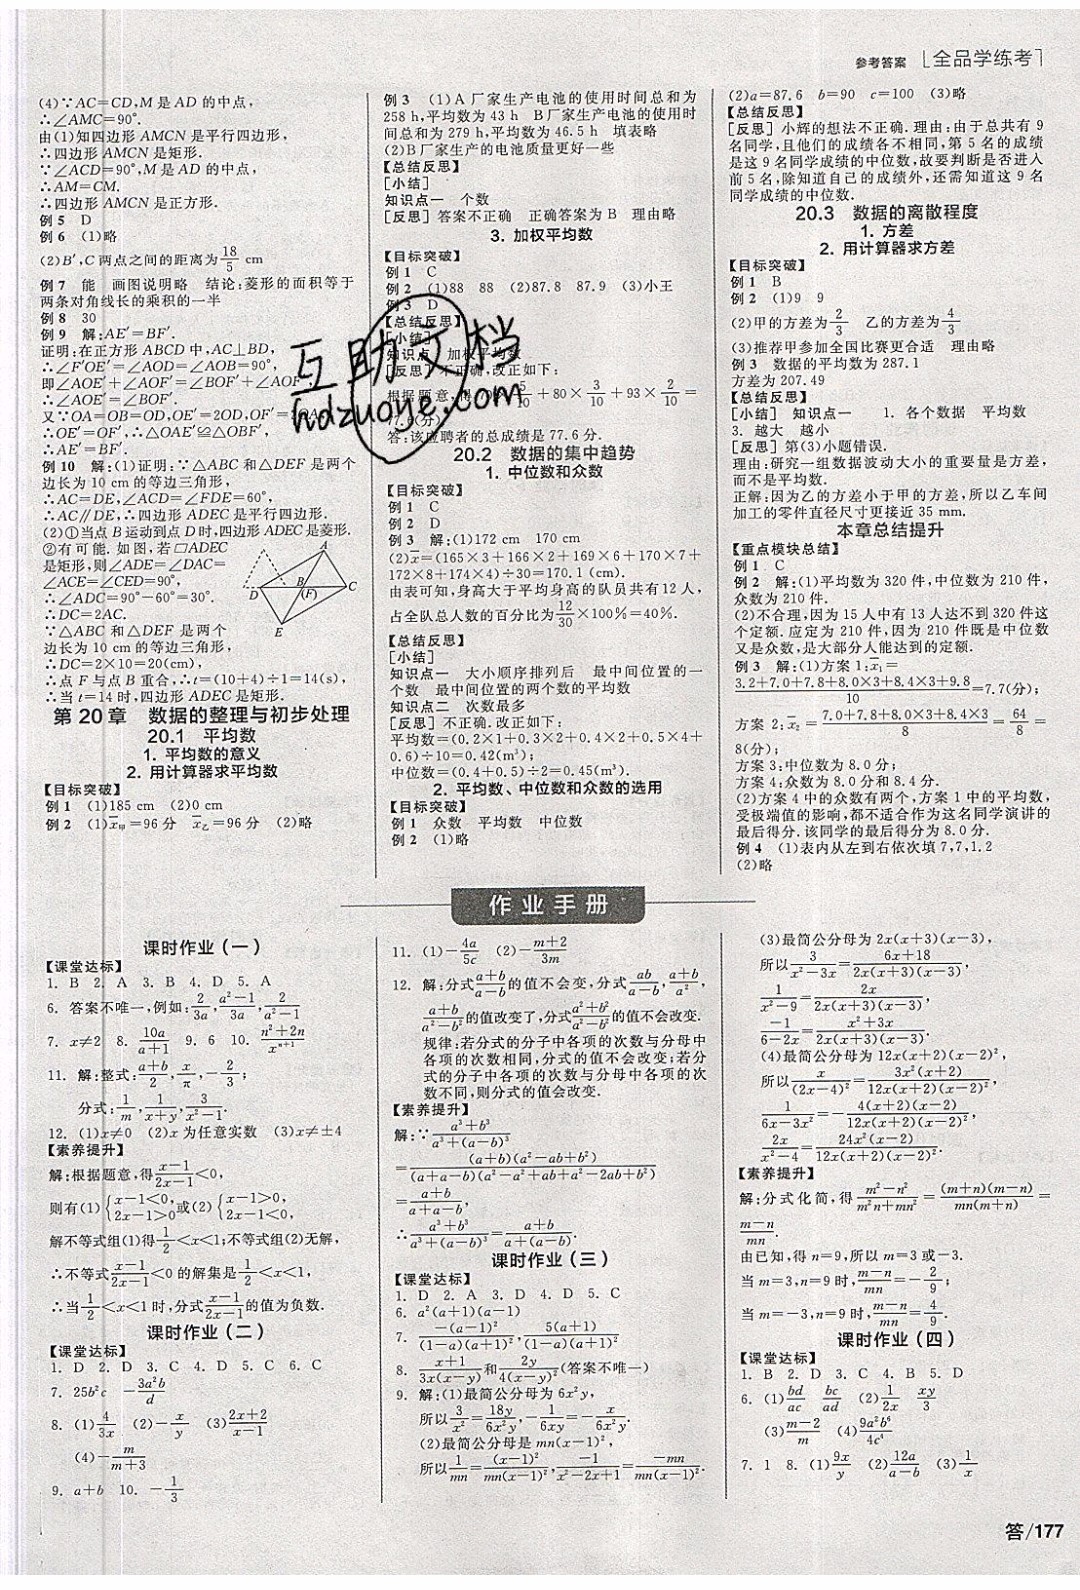 参考答案 [全品学练考]
(4)∵AC=CD,M是AD的中点,
∴∠AMC=90°.
由(1)知四边形AMCN是平行四边形,
∴四边形AMCN是矩形.
∵∠ACD=90°,M是AD的中点,
∴AM=CM.
∴四边形AMCN是正方形.
例5 D
例6 (1)略
(2)B′,C两点之间的距离为18/5 cm
例7 能 画图说明略 结论:菱形的面积等于
两条对角线长的乘积的一半
例8 30
例9 解:AE′=BF′.
证明:在正方形ABCD中,AC⊥BD,
∴∠F′OE′=∠AOD=∠AOB=90°,
即∠AOE′+∠AOF′=∠BOF′+∠AOF′
∴∠AOE′=∠BOF′.
又∵OA=OB=OD,OE′=2OD,OF′=2OA,
∴OE′=OF′,∴△OAE′≌△OBF′,
∴AE′=BF′.
例10 解:(1)证明:∵△ABC和△DEF是两个
边长为10 cm的等边三角形,
∴AC=DE,∠ACD=∠FDE=60°,
∴AC∥DE,∴四边形ADEC是平行四边形.
(2)①当点B运动到点D时,四边形ADEC是菱形.
②有可能.如图,若▱ADEC
是矩形,则∠ADE=∠DAC=
∠ACE=∠CED=90°,
∴∠ADC=90°-60°=30°.
∴DC=2AC.
∵△ABC和△DEF是两个
边长为10 cm的等边三角形,
∴DC=2×10=20(cm),
∴点F与点B重合,∴t=(10+4)÷1=14(s),
∴当t=14时,四边形ADEC是矩形.
A
D B (F) C
E
第20章 数据的整理与初步处理
20.1 平均数
1. 平均数的意义
2. 用计算器求平均数
【目标突破】
例1 (1)185 cm (2)0 cm
例2 (1)x̄甲=96分 x̄乙=96分 (2)略
例3 (1)A厂家生产电池的使用时间总和为
258 h,平均数为43 h B厂家生产电池的使用时
间总和为279 h,平均数为46.5 h 填表略
(2)B厂家生产的电池质量更好一些
【总结反思】
[小结]
知识点一 个数
[反思] 答案不正确 正确答案为B 理由略
3. 加权平均数
【目标突破】
例1 C
例2 (1)88 88 (2)87.8 87.9 (3)小王
例3 D
【总结反思】
[小结]
知识点 加权平均数
[反思] 不正确.改正如下:
根据题意,得70×5/10+80×3/10+93×2/10=
77.6(分).
答:该应聘者的总成绩是77.6分.
互助文档
hdzuoye.com
20.2 数据的集中趋势
1. 中位数和众数
【目标突破】
例1 C
例2 D
例3 解:(1)172 cm 170 cm
(2)x̄=(165×3+166×2+169×6+170×7+
172×8+174×4)÷30=170.1(cm).
由表可知,身高大于平均身高的队员共有12人,
占全队总人数的百分比为12/30×100%=40%.
【总结反思】
[小结]
知识点一 大小顺序排列后 最中间位置的一
个数 最中间位置的两个数的平均数
知识点二 次数最多
[反思] 不正确.改正如下:
平均数=(0.2×1+0.3×2+0.4×2+0.5×4+
0.6)÷10=0.42(m³);
中位数=(0.4+0.5)÷2=0.45(m³).
2. 平均数、中位数和众数的选用
【目标突破】
例1 众数 平均数 中位数
例2 (1)略
(2)a=87.6 b=90 c=100 (3)略
【总结反思】
[反思] 小辉的想法不正确.理由:由于总共有9
名同学,且他们的成绩各不相同,第5名的成绩
是这9名同学成绩的中位数,故要判断是否进入
前5名,除知道自己的成绩外,还需知道这9名
同学成绩的中位数.
20.3 数据的离散程度
1. 方差
2. 用计算器求方差
【目标突破】
例1 B
例2 (1)9 9
(2)甲的方差为2/3 乙的方差为4/3
(3)推荐甲参加全国比赛更合适 理由略
例3 数据的平均数为287.1
方差为207.49
【总结反思】
[小结] 知识点一 1. 各个数据 平均数
3. 越大 越小
[反思] 第(3)小题错误.
理由:研究一组数据波动大小的重要量是方差,
而不是平均数.
正解:因为乙的方差小于甲的方差,所以乙车间
加工的零件直径尺寸更接近35 mm.
本章总结提升
【重点模块总结】
例1 C
例2 解:(1)平均数为320件,中位数为210件,
众数为210件.
(2)不合理,因为15人中有13人达不到320件这
个定额.应定为210件,因为210件既是中位数
又是众数,是大部分人能达到的定额.
例3 解:(1)方案1:x̄₁=
(3.2+7.0+7.8+8.0×3+8.4×3+9.8)/10=7.7(分);
方案2:x̄₂=(7.0+7.8+8.0×3+8.4×3)/8=64/8=
8(分);
方案3:中位数为8.0分;
方案4:众数为8.0分和8.4分.
(2)方案4中的众数有两个,方案1中的平均数,
受极端值的影响,都不适合作为这名同学演讲的
最后得分.该同学的最后得分为8.0分.
例4 (1)表内从左到右依次填7,7,1.2
(2)略
作业手册
课时作业(一)
【课堂达标】
1. B 2. A 3. B 4. D 5. A
6. 答案不唯一,例如:2/3a,(a²-1)/3a,2/(a²-1)
7. x≠2 8. 10a/(a+1) 9. 6 10. (n²+2n)/xⁿ⁺¹
11. 解:整式:(a+b)/2,x/π,-2/3;
分式:1/m,1/(x+y),3/(x²-1).
12. (1)x≠0 (2)x为任意实数 (3)x≠±4
【素养提升】
解:根据题意,得(x-1)/(2x-1)<0,
则有(1){x-1<0, 2x-1>0或(2){x-1>0, 2x-1<0,
解不等式组(1)得1/2<x<1;不等式组(2)无解,
∴不等式(x-1)/(2x-1)<0的解集是1/2<x<1,
∴当1/2<x<1时,分式(x-1)/(2x-1)的值为负数.
课时作业(二)
【课堂达标】
1. D 2. D 3. C 4. D 5. C 6. C
7. 25b²c -3a²b/d
8. (1)4/3x (2)-x/y (3)(2x+2)/(x-1)
(4)-m/(m+3)
9. a+b 10. -1/3
11. (1)-4a/5c (2)-(m+2)/3m
12. 解:分式(a+b)/(a-b)的值不会变,分式ab/(a-b),(a+b)/a²,
(a+b)/(a²-b²)的值改变了,分式(a²+b²)/(a²-b²)的值不会改变.
规律:若分式的分子中各项的次数与分母中
各项的次数相同,分式的值不会改变;若分
式的分子中各项的次数与分母中各项的次
数不同,则分式的值会改变.
【素养提升】
解:∵(a³+b³)/(a³+(a-b)³)
=(a+b)(a²-ab+b²)/((a+a-b)(a²-a²+ab+a²-2ab+b²))
=(a+b)/(a+a-b),
∴(a³+b³)/(a³+(a-b)³)=(a+b)/(a+(a-b)).
课时作业(三)
【课堂达标】
1. D 2. A 3. D 4. D 5. C
6. a²(a+1)(a-1)
7. -(a-1)²/((1-a)(a+1)²),5(a+1)/((1-a)(a+1)²)
8. (x+1)/(3x(x-y))和2y/(4(x-y)²)(答案不唯一)
9. 解:(1)最简公分母为6x²y,
所以3/x²=18y/6x²y,-1/6xy=-x/6x²y.
(2)最简公分母是mn(x-1)²,
所以1/mn=(x-1)²/(mn(x-1)²),-1/(x²-2x+1)=-mn/(mn(x-1)²).
(3)最简公分母为2x(x+3)(x-3),
所以3/(x²-3x)=(6x+18)/(2x(x+3)(x-3)),
1/(x²-9)=2x/(2x(x+3)(x-3)),
-1/(6-2x)=(x²+3x)/(2x(x+3)(x-3)).
(4)最简公分母为12x(x+2)(x-2)²,
所以x/(2x-4)²=3x²(x+2)/(12x(x+2)(x-2)²),
1/(6x-3x²)=-4(x+2)(x-2)/(12x(x+2)(x-2)²),
2x/(x²-4)=24x²(x-2)/(12x(x+2)(x-2)²).
【素养提升】
解:分式化简,得(m²-n²)/(m²n+mn²)=(m+n)(m-n)/(mn(m+n))=
(m-n)/mn.
由已知,得n=9,所以m=3或-3.
当m=3,n=9时,(m-n)/mn=-2/9;
当m=-3,n=9时,(m-n)/mn=4/9.
课时作业(四)
【课堂达标】
1. B 2. D 3. C 4. B 5. D
6. (1)bd/ac bc/ad (2)1/2x xy/3
(3)(m-2)/m (4)9a²b⁶/4c⁴
7. 1 8. (1)9x/y (2)12a/(a-b) (3)1/x
答/177